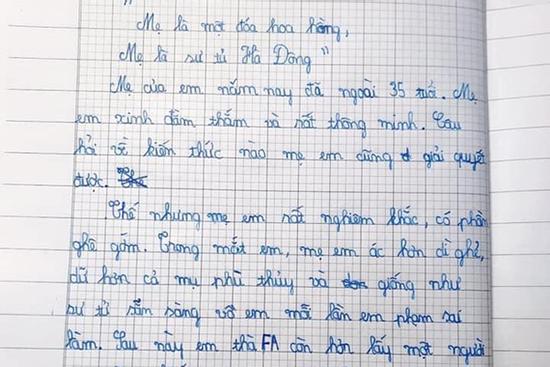 "
Mẹ là một đóa hoa hồng,
Mẹ là sư tử Hà Đông"
Mẹ của em nắm nay đã ngoài 35 tuổi. Mẹ
em xinh đằm thắm và rất thông minh. Câu
hỏi về kiến thức nào mẹ em cũng giải quyết
được.
Thế nhưng mẹ em rất nghiêm khắc, có phần
ghê gớm. Trong mắt em, mẹ em ác hơn dì ghẻ,
dữ hơn cả mụ phù thủy và giống như
sư tử sẵn sàng vồ em mỗi lần em phạm sai
lầm. Sau này em thà FA còn hơn lấy một người